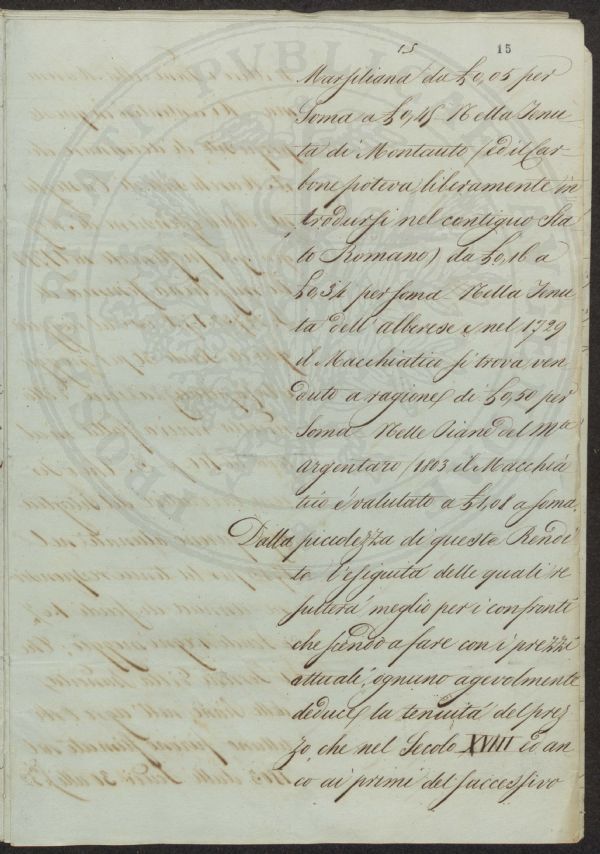 15 15
Marsiliana da £0,05 per
Soma a £0,45 Nella Tenu-
ta di Montauto (ed il Car-
bone poteva liberamente in
trodursi nel contiguo Sta
to Romano) da £0,16 a
£0,34 per soma Nella Tenu
ta dell'alberese, nel 1729
il Macchiatico si trova ven
duto a ragione di £0,50 per
Soma Nelle Piane del Mte
argentaro, 1803 il Macchia
tico è valutato a £1,08 a soma.
Dalla picciolezza di queste Rendi
te l'esiguità delle quali re
sulterà meglio per i confronti
che scendo a fare con i prezzi
attuali, ognuno agevolmente
deduce la tenuità del prez
zo, che nel Secolo XVIII ed an
co ai primi del successivo